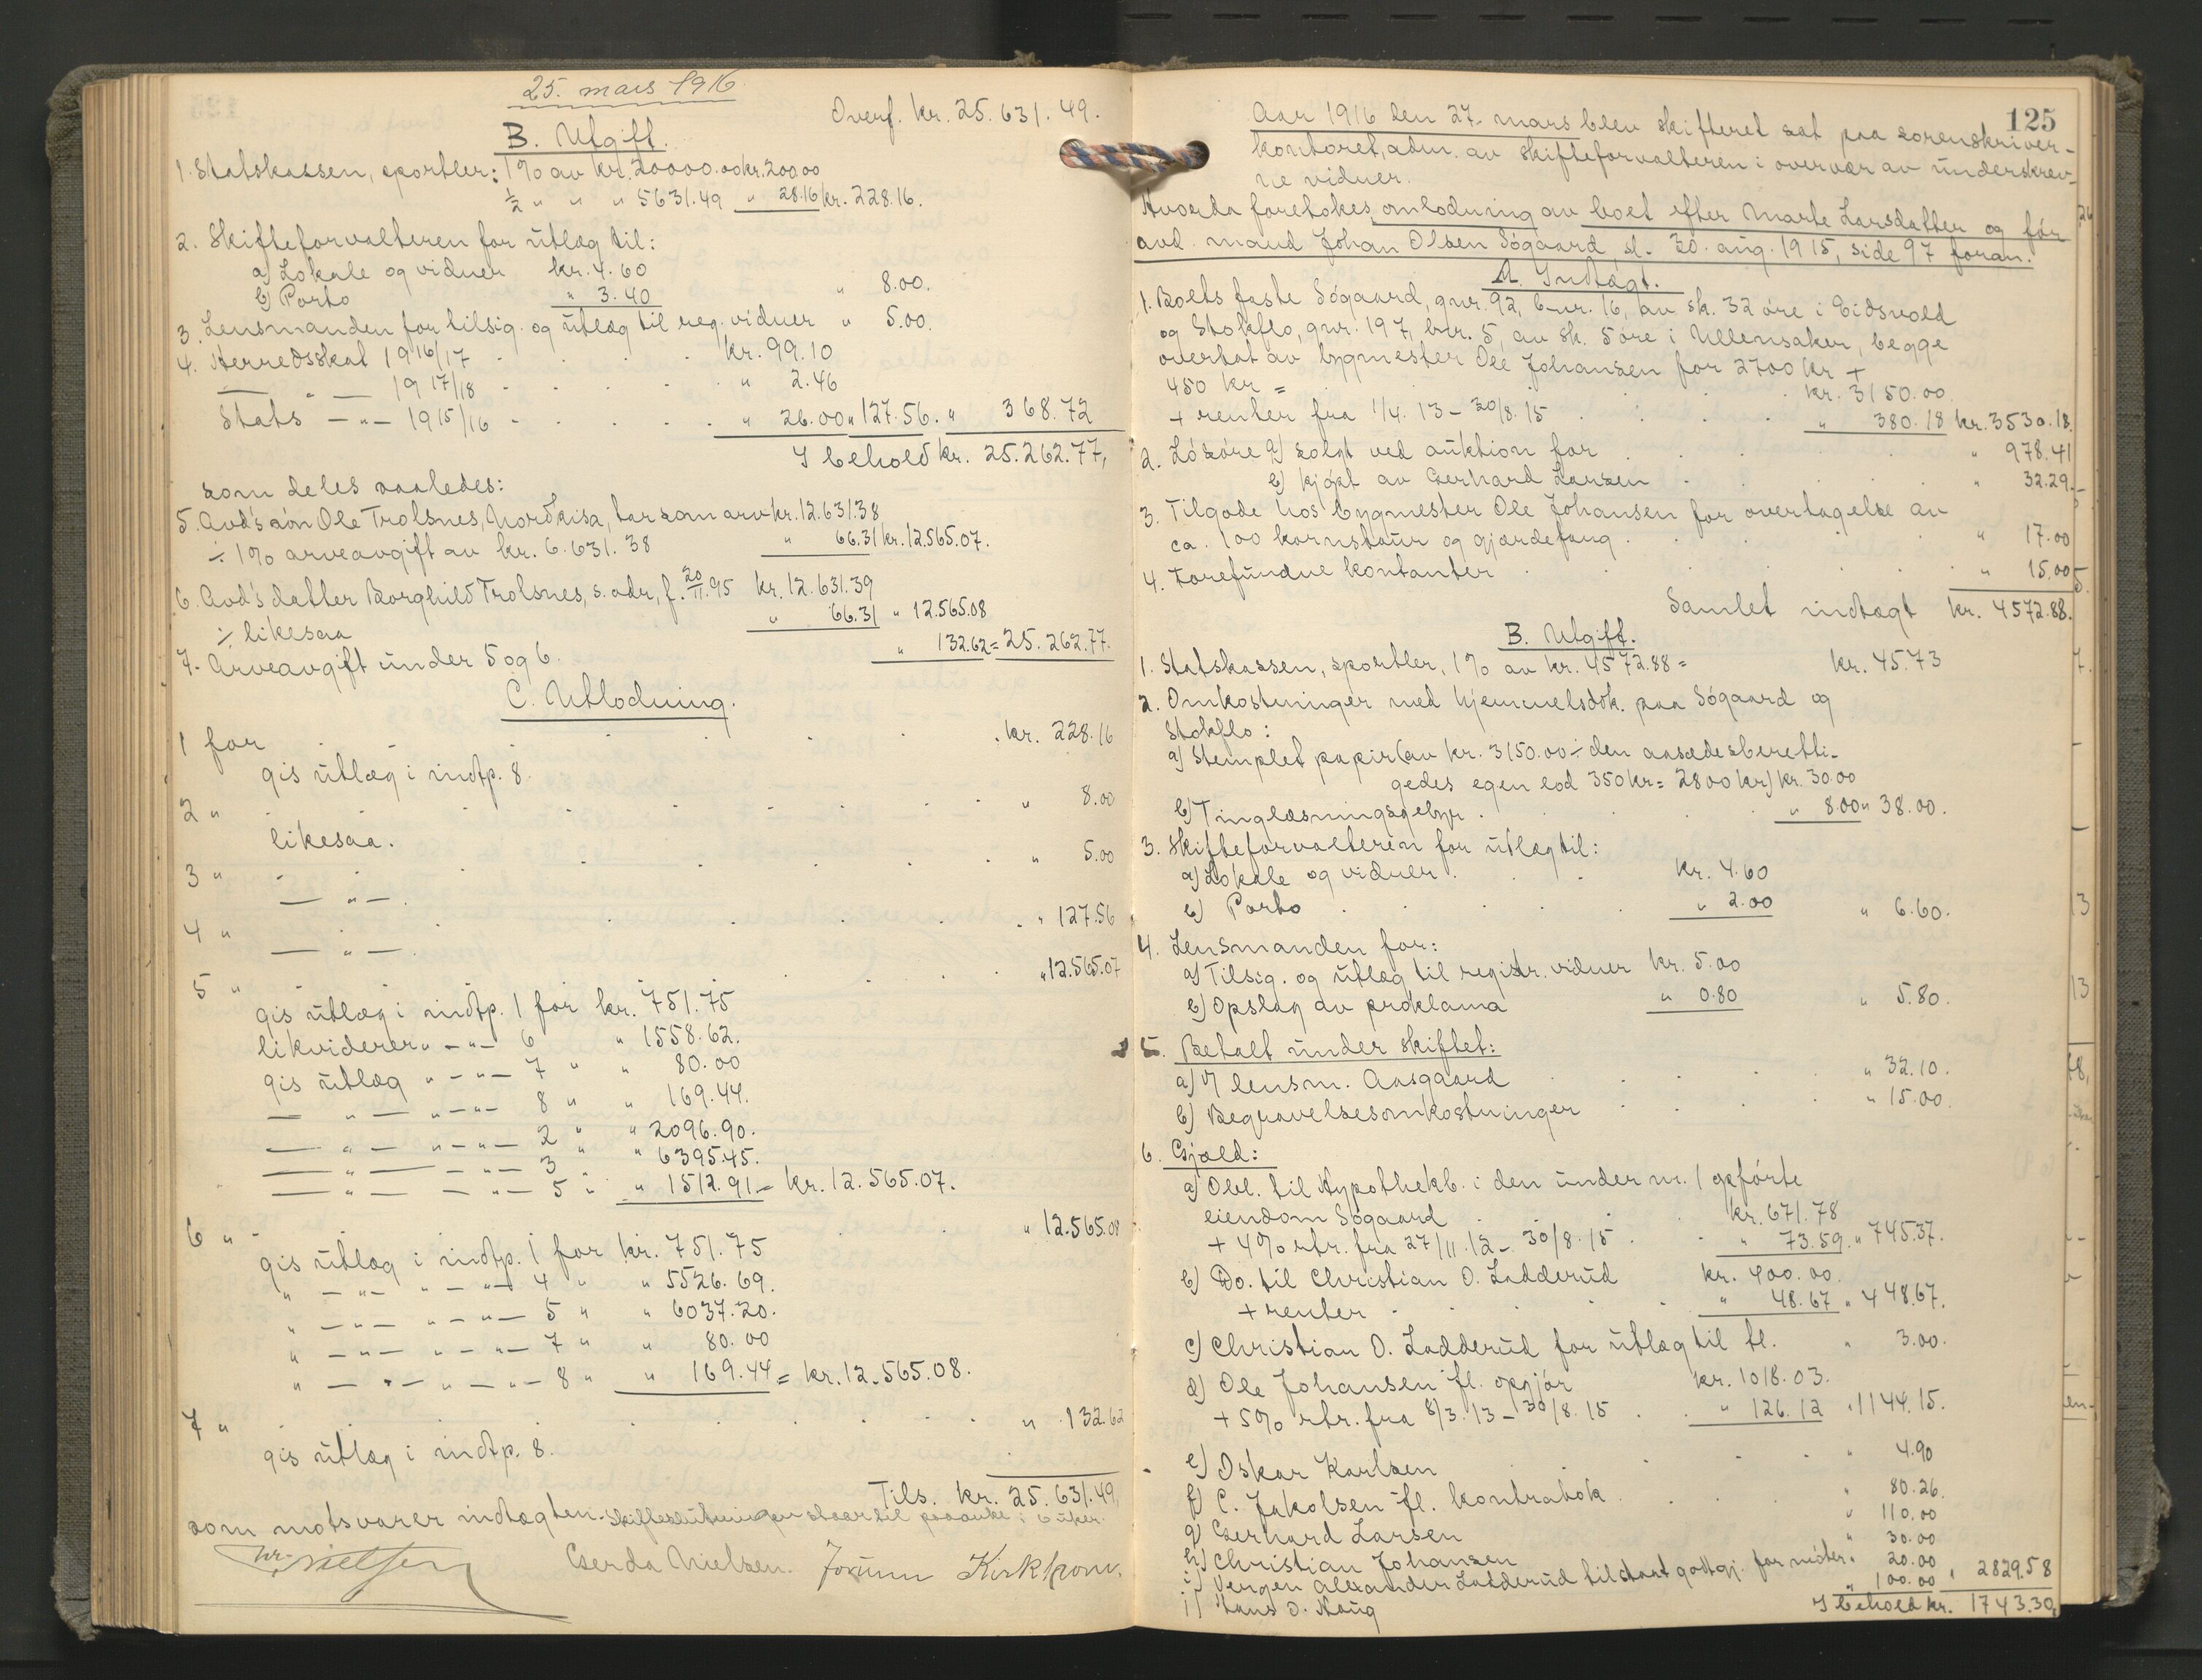 25. mars 1916.
Overf. kr. 25.631.49.
B. Utgift.
1. Statskassen, sportler: 1% av kr. 20000.00 kr. 200.00
½ " " " 5631.49 " 28.16 kr. 228.16.
2. Skifteforvalteren for utlæg til:
a) Lokale og vidner kr. 4.60
b) Porto " 3.40 " 8.00.
3. Lensmanden for tilsig. og utlæg til reg. vidner " 5.00.
4. Herredsskat 1916/17 kr. 99.10
— " — 1917/18 " 2.46
Stats — " — 1915/16 " 26.00 " 127.56. " 368.72
I behold kr. 25.262.77,
som deles saaledes:
5. Avd's søn Ole Trolsnes, Nordkisa, tar som arv kr. 12.631.38
÷ 1% arveavgift av kr. 6.631.38 " 66.31 kr. 12.565.07.
6. Avd's datter Borghild Trolsnes, s. adr, f. 20/11.95 kr. 12.631.39
÷ likesaa " 66.31 " 12.565.08
7. Arveavgift under 5 og 6. " 132.62 = 25.262.77.
C. Utlodning.
1 for kr. 228.16
gis utlæg i indtp. 8.
2 " " 8.00
likesaa.
3 " " 5.00
— " —.
4 " " 127.56
— " —.
5 " " 12.565.07
gis utlæg i indtp. 1 for kr. 751.75
likviderer " — " — 6 " 1558.62.
gis utlæg " — " — 7 " " 80.00
— " — " — " — 8 " " 169.44.
— " — " — " — 2 " " 2096.90.
— " — — " — 3 " 6395.45.
— " — — " — 5 " " 1512.91 = kr. 12.565.07.
6 " " 12.565.08
gis utlæg i indtp. 1 for kr. 751.75
" — " — " — " — 4 " " 5526.69.
" — " — " — " — 5 " " 6037.20.
" — " — " — " — 7 " " 80.00
" — " — " — " — 8 " " 169.44 = kr. 12.565.08.
7 " " 132.62
gis utlæg i indtp. 8.
Tils. kr. 25.631.49,
som motsvarer indtægten. Skifteslutningen staar til paaanke i 6 uker.
Nielsen Gerda Nielsen. Jorunn Kirkhorn.
125
Aar 1916 den 27. mars blev skifteret sat paa sorenskriver-
kontoret, adm. av skifteforvalteren i overvær av underskrev-
ne vidner.
Hvorda foretokes omlodning av boet efter Marte Larsdatter og før
avd. mand Johan Olsen Søgaard, sl. 30. aug. 1915, side 97 foran.
A. Indtægt.
1. Boets faste Søgaard, gnr. 92, bnr. 16, av sk. 32 øre i Eidsvold
og Stokflo, gnr. 197, bnr. 5, av sk. 5 øre i Ullensaker, begge
overtat av bygmester Ole Johansen for 2700 kr +
450 kr = kr. 3150.00
+ renter fra 1/4.13 – 30/8.15 " 380.18 kr. 3530.18.
2. Løsøre a) solgt ved auktion for " 978.41
b) kjøpt av Gerhard Larsen " 32.29.
3. Tilgode hos bygmester Ole Johansen for overtagelse av
ca. 100 kornstaur og gjærdefang " 17.00
4. Forefundne kontanter " 15.00
Samlet indtægt kr. 4572.88.
B. Utgift.
1. Statskassen, sportler, 1% av kr. 4572.88 = kr. 45.73
2. Omkostninger med hjemmelsdok. paa Søgaard og
Stokflo:
a) Stemplet papir (av kr. 3150.00 ÷ den aasædesberetti-
gedes egen lod 350 kr = 2800 kr) kr. 30.00
b) Tinglæsningsgebyr " 8.00 " 38.00.
3. Skifteforvalteren for utlæg til:
a) Lokale og vidner kr. 4.60
b) Porto " 2.00 " 6.60.
4. Lensmanden for:
a) Tilsig. og utlæg til registr. vidner kr. 5.00
b) Opslag av proklama " 0.80 " 5.80.
5. Betalt under skiftet:
a) V/ lensm. Aasgaard " 32.10.
b) Begravelsesomkostninger " 15.00.
6. Gjæld:
a) Obl. til Hypothekb. i den under nr. 1 opførte
eiendom Søgaard kr. 671.78
+ 4% rtr. fra 27/11.12 – 30/8.15 " 73.59. " 745.37.
b) Do. til Christian O. Ladderud kr. 400.00.
+ renter " 48.67 " 448.67.
c) Christian O. Ladderud for utlæg til tl. " 3.00.
d) Ole Johansen fl. opgjør kr. 1018.03.
+ 5% rtr. fra 8/3.13 – 30/8.15 " 126.12 " 1144.15.
e) Oskar Karlsen " 4.90
f) C. Jakolsen fl. kontrabok " 80.26.
g) Gerhard Larsen " 110.00
h) Christian Johansen " 30.00
i) Vergen Alexander Ladderud tilstaat godtgj. for møter " 20.00
j) Hans O. Haug " 100.00 " 2829.58
I behold kr. 1743.30,